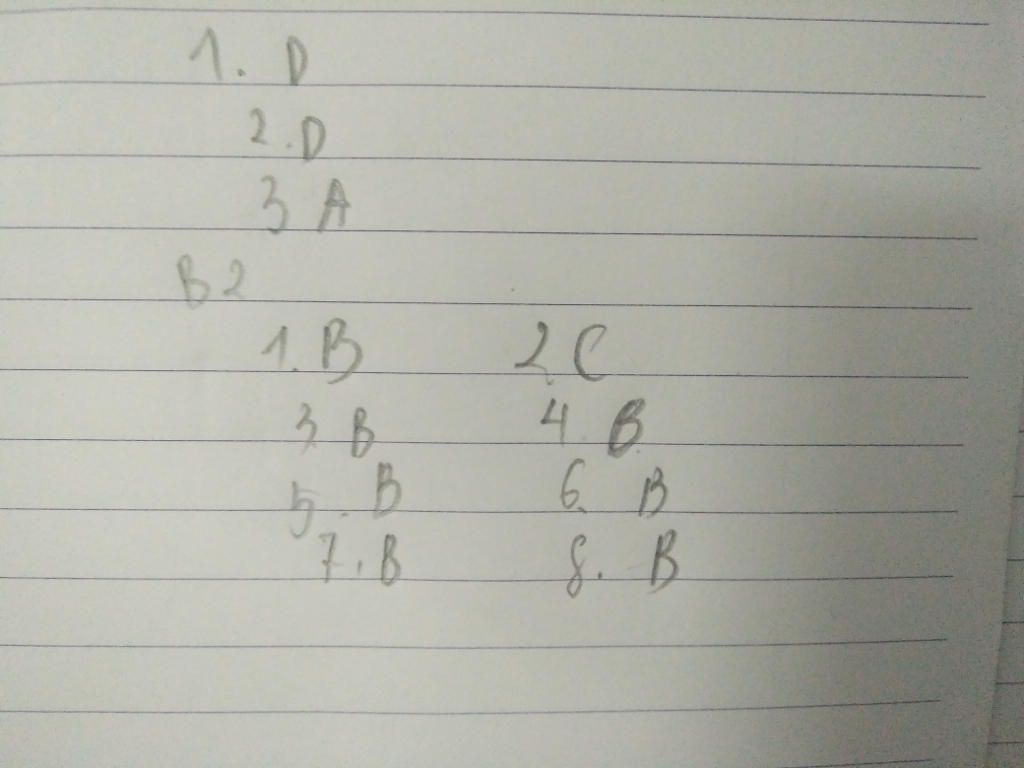 1. D
2. D
3 A
B2
1. B 2. C
3. B 4. B
5. B 6. B
7. B 8. B